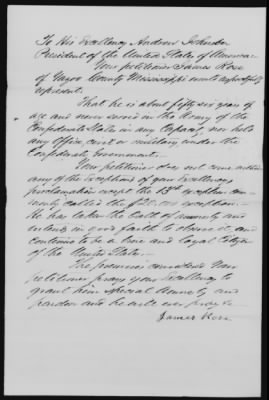 To His Excellency Andrew Johnson
President of the United States of America
Your petitioner James Rose
of Yazoo County Mississippi would respectfully
represent
That he is about fifty six years of
age and never served in the Army of the
Confederate States in any Capacity, nor held
any Office, civil or military under the
Confederate Government.
Your petitioner does not come within
any of the exceptions of your Excellency's
proclamation except the 13th exception com-
monly called the $20,000 exception
He has taken the oath of amnesty and
intends in good faith to observe it, and
continue to be a true and loyal Citizen
of the United States.
The premises considered Your
petitioner prays your Excellency to
grant him special Amnesty and
pardon and he will ever pray &c
James Rose